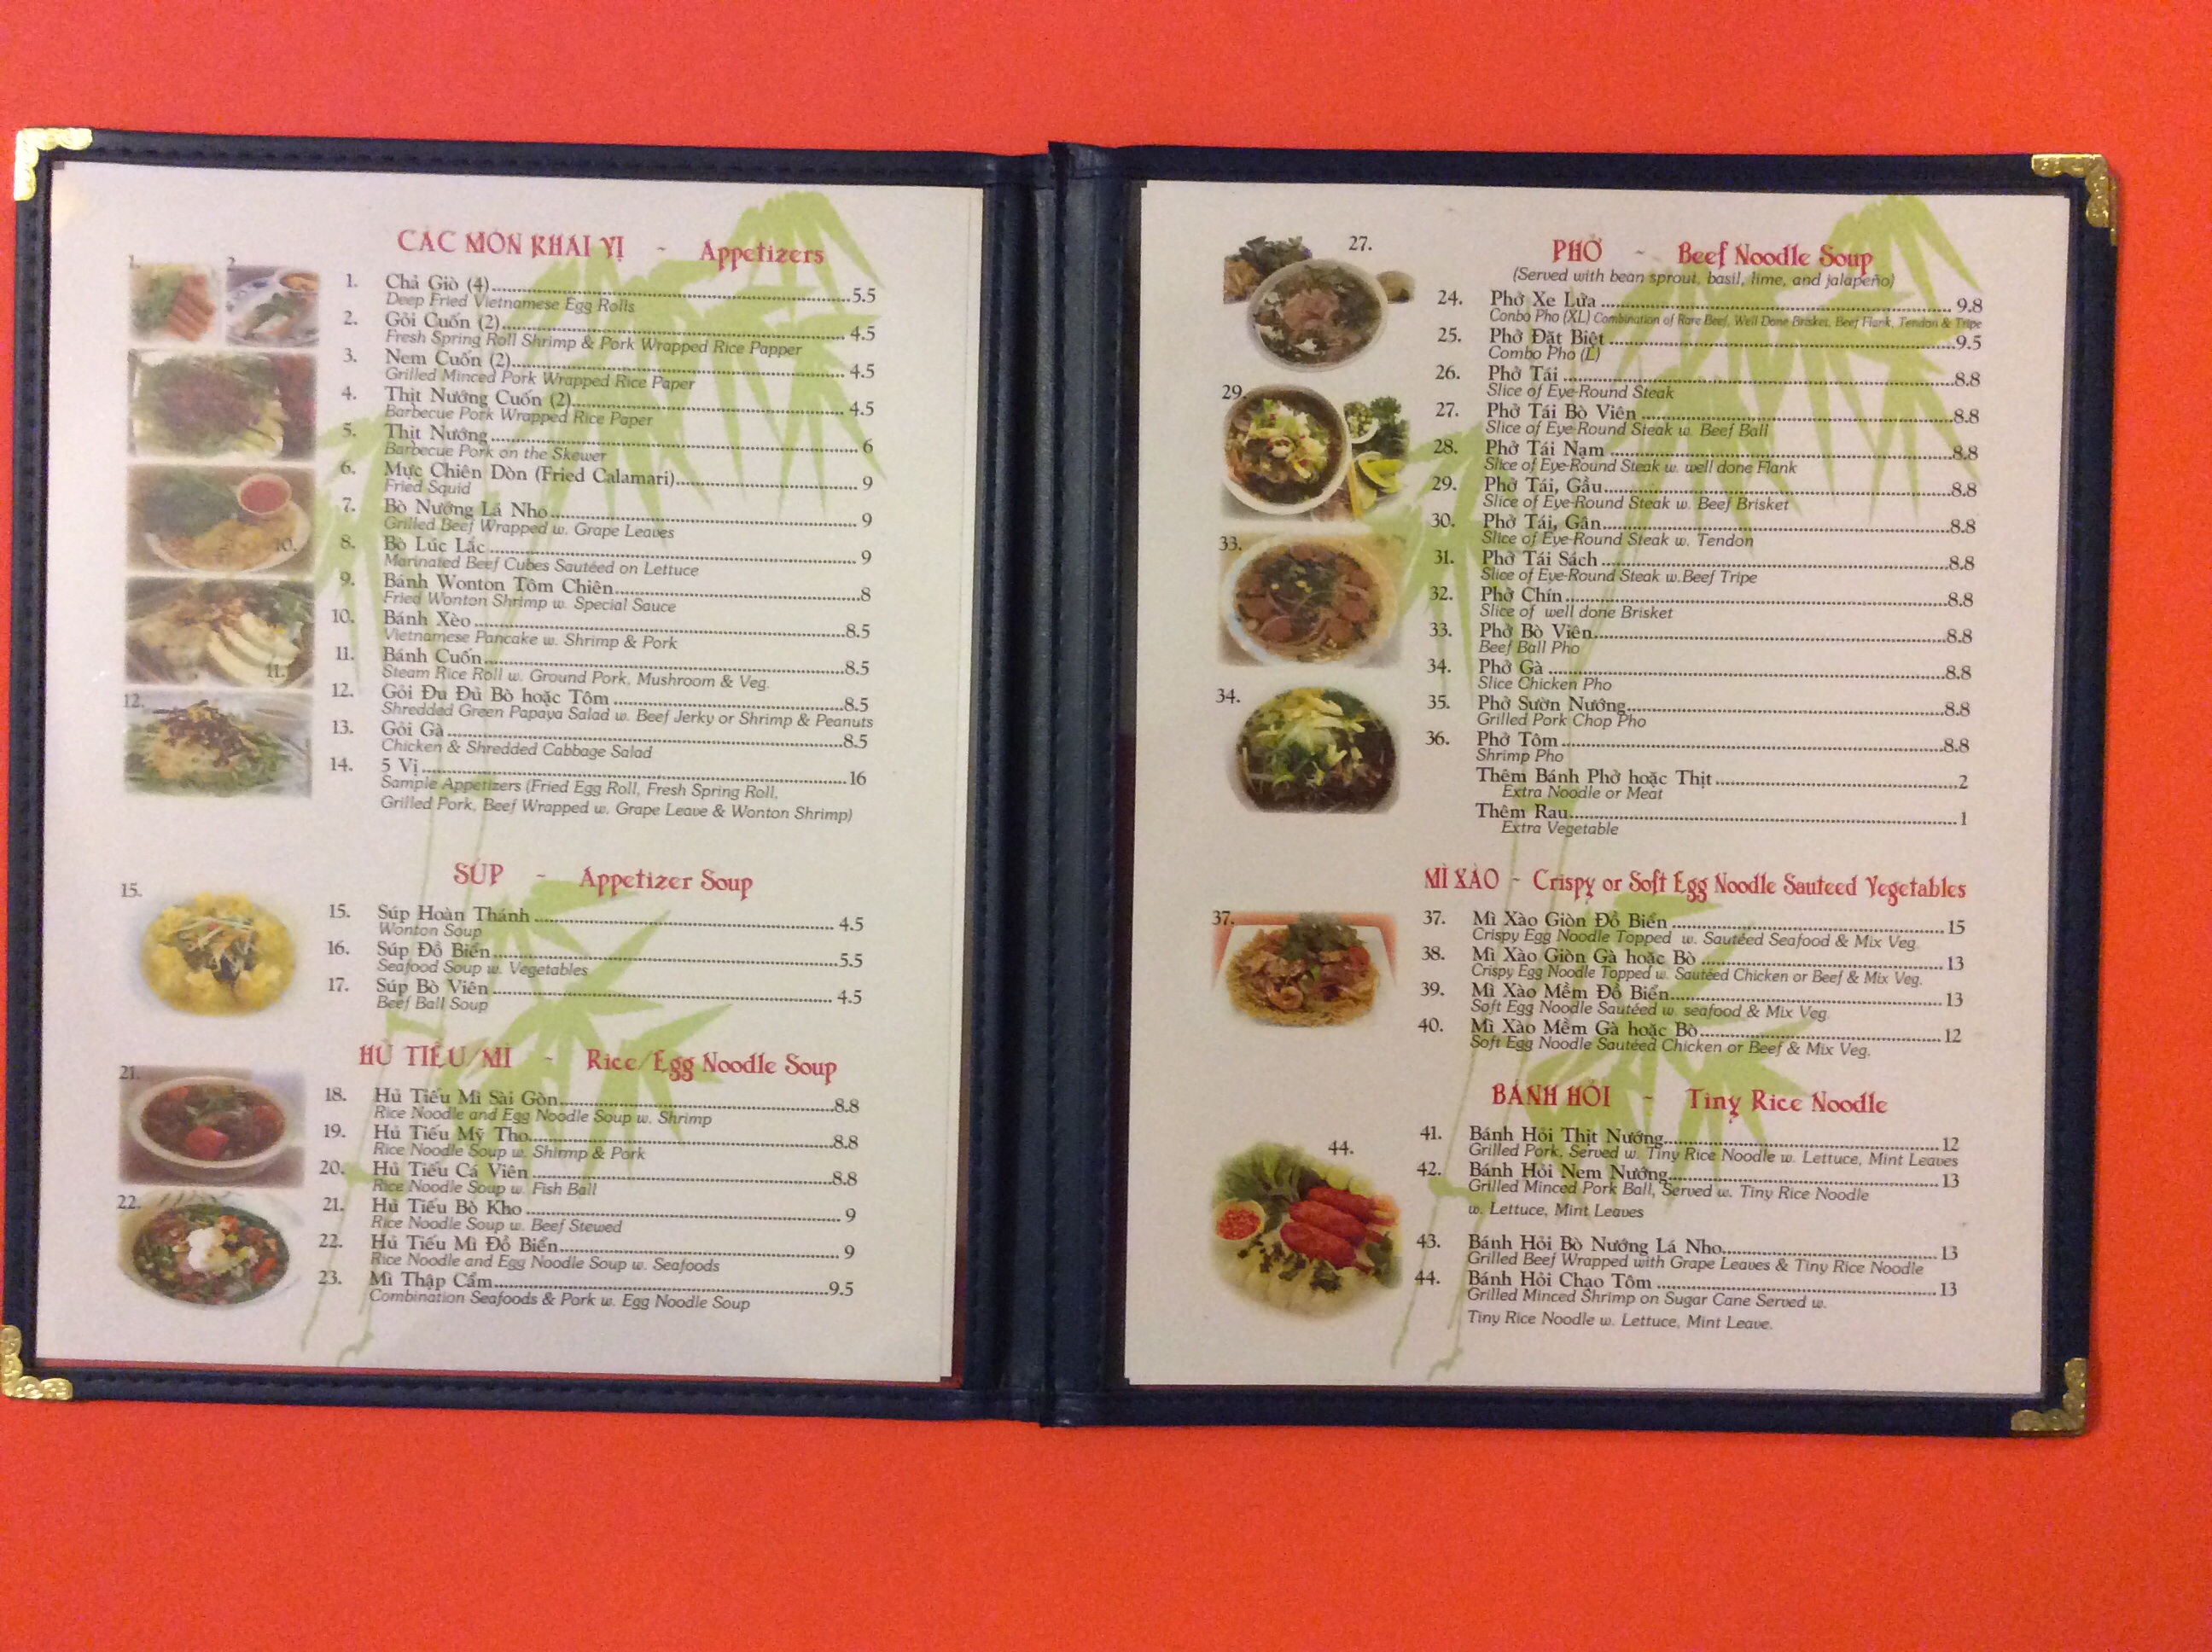 CÁC MÓN KHAI VỊ ~ Appetizers
1.
2.
1. Chả Giò (4) 5.5
Deep Fried Vietnamese Egg Rolls
2. Gỏi Cuốn (2) 4.5
Fresh Spring Roll Shrimp & Pork Wrapped Rice Papper
3. Nem Cuốn (2) 4.5
Grilled Minced Pork Wrapped Rice Paper
4. Thịt Nướng Cuốn (2) 4.5
Barbecue Pork Wrapped Rice Paper
5. Thịt Nướng 6
Barbecue Pork on the Skewer
6. Mực Chiên Dòn (Fried Calamari) 9
Fried Squid
7. Bò Nướng Lá Nho 9
Grilled Beef Wrapped w. Grape Leaves
8. Bò Lúc Lắc 9
Marinated Beef Cubes Sautéed on Lettuce
9. Bánh Wonton Tôm Chiên 8
Fried Wonton Shrimp w. Special Sauce
10.
10. Bánh Xèo 8.5
Vietnamese Pancake w. Shrimp & Pork
11.
11. Bánh Cuốn 8.5
Steam Rice Roll w. Ground Pork, Mushroom & Veg.
12.
12. Gỏi Đu Đủ Bò hoặc Tôm 8.5
Shredded Green Papaya Salad w. Beef Jerky or Shrimp & Peanuts
13. Gỏi Gà 8.5
Chicken & Shredded Cabbage Salad
14. 5 Vị 16
Sample Appetizers (Fried Egg Roll, Fresh Spring Roll,
Grilled Pork, Beef Wrapped w. Grape Leave & Wonton Shrimp)
SÚP ~ Appetizer Soup
15.
15. Súp Hoàn Thánh 4.5
Wonton Soup
16. Súp Đồ Biển 5.5
Seafood Soup w. Vegetables
17. Súp Bò Viên 4.5
Beef Ball Soup
HỦ TIẾU/MÌ ~ Rice/Egg Noodle Soup
21.
18. Hủ Tiếu Mì Sài Gòn 8.8
Rice Noodle and Egg Noodle Soup w. Shrimp
19. Hủ Tiếu Mỹ Tho 8.8
Rice Noodle Soup w. Shirmp & Pork
20. Hủ Tiếu Cá Viên 8.8
Rice Noodle Soup w. Fish Ball
22.
21. Hủ Tiếu Bò Kho 9
Rice Noodle Soup w. Beef Stewed
22. Hủ Tiếu Mì Đồ Biển 9
Rice Noodle and Egg Noodle Soup w. Seafoods
23. Mì Thập Cẩm 9.5
Combination Seafoods & Pork w. Egg Noodle Soup
27.
PHỞ ~ Beef Noodle Soup
(Served with bean sprout, basil, lime, and jalapeño)
24. Phở Xe Lửa 9.8
Conbo Pho (XL) Combination of Rare Beef, Well Done Brisket, Beef Flank, Tendon & Tripe
25. Phở Đặt Biệt 9.5
Combo Pho (L)
26. Phở Tái 8.8
Slice of Eye-Round Steak
29.
27. Phở Tái Bò Viên 8.8
Slice of Eye-Round Steak w. Beef Ball
28. Phở Tái Nạm 8.8
Slice of Eye-Round Steak w. well done Flank
29. Phở Tái, Gầu 8.8
Slice of Eye-Round Steak w. Beef Brisket
30. Phở Tái, Gân 8.8
Slice of Eye-Round Steak w. Tendon
33.
31. Phở Tái Sách 8.8
Slice of Eye-Round Steak w.Beef Tripe
32. Phở Chín 8.8
Slice of well done Brisket
33. Phở Bò Viên 8.8
Beef Ball Pho
34.
34. Phở Gà 8.8
Slice Chicken Pho
35. Phở Sườn Nướng 8.8
Grilled Pork Chop Pho
36. Phở Tôm 8.8
Shrimp Pho
Thêm Bánh Phở hoặc Thịt 2
Extra Noodle or Meat
Thêm Rau 1
Extra Vegetable
MÌ XÀO ~ Crispy or Soft Egg Noodle Sauteed Vegetables
37.
37. Mì Xào Giòn Đồ Biển 15
Crispy Egg Noodle Topped w. Sautéed Seafood & Mix Veg.
38. Mì Xào Giòn Gà hoặc Bò 13
Crispy Egg Noodle Topped w. Sautéed Chicken or Beef & Mix Veg.
39. Mì Xào Mềm Đồ Biển 13
Soft Egg Noodle Sautéed w. seafood & Mix Veg.
40. Mì Xào Mềm Gà hoặc Bò 12
Soft Egg Noodle Sautéed Chicken or Beef & Mix Veg.
BÁNH HỎI ~ Tiny Rice Noodle
44.
41. Bánh Hỏi Thịt Nướng 12
Grilled Pork, Served w. Tiny Rice Noodle w. Lettuce, Mint Leaves
42. Bánh Hỏi Nem Nướng 13
Grilled Minced Pork Ball, Served w. Tiny Rice Noodle
w. Lettuce, Mint Leaves
43. Bánh Hỏi Bò Nướng Lá Nho 13
Grilled Beef Wrapped with Grape Leaves & Tiny Rice Noodle
44. Bánh Hỏi Chạo Tôm 13
Grilled Minced Shrimp on Sugar Cane Served w.
Tiny Rice Noodle w. Lettuce, Mint Leave.